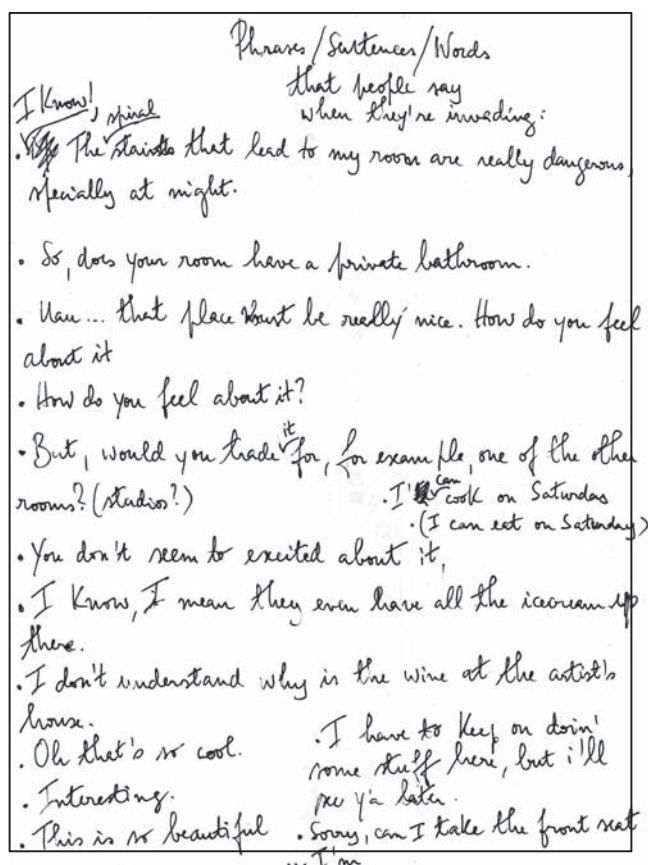 Phrases/Sentences/Words
that people say
when they're invading:
I Know!, spiral
. The stairs that lead to my room are really dangerous,
specially at night.
. So, does your room have a private bathroom.
. Uau... that place must be really nice. How do you feel
about it
. How do you feel about it?
it
. But, would you trade for, for example, one of the other
rooms? (studios?)
. I can cook on Saturdas
. (I can eat on Saturday)
. You don't seem to excited about it,
. I Know, I mean they even have all the icecream up
there.
. I don't understand why is the wine at the artist's
house.
. Oh that's so cool.
. Interesting.
. This is so beautiful
. I have to Keep on doin'
some stuff here, but i'll
see y'a later.
. Sorry, can I take the front seat
... I'm